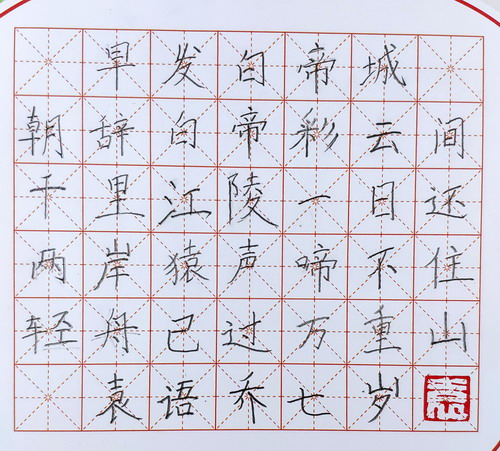 旱发白帝城
朝辞白帝彩云间
千里江陵一目还
两岸猿声啼不住
轻舟已过万重山
袁语乔七岁